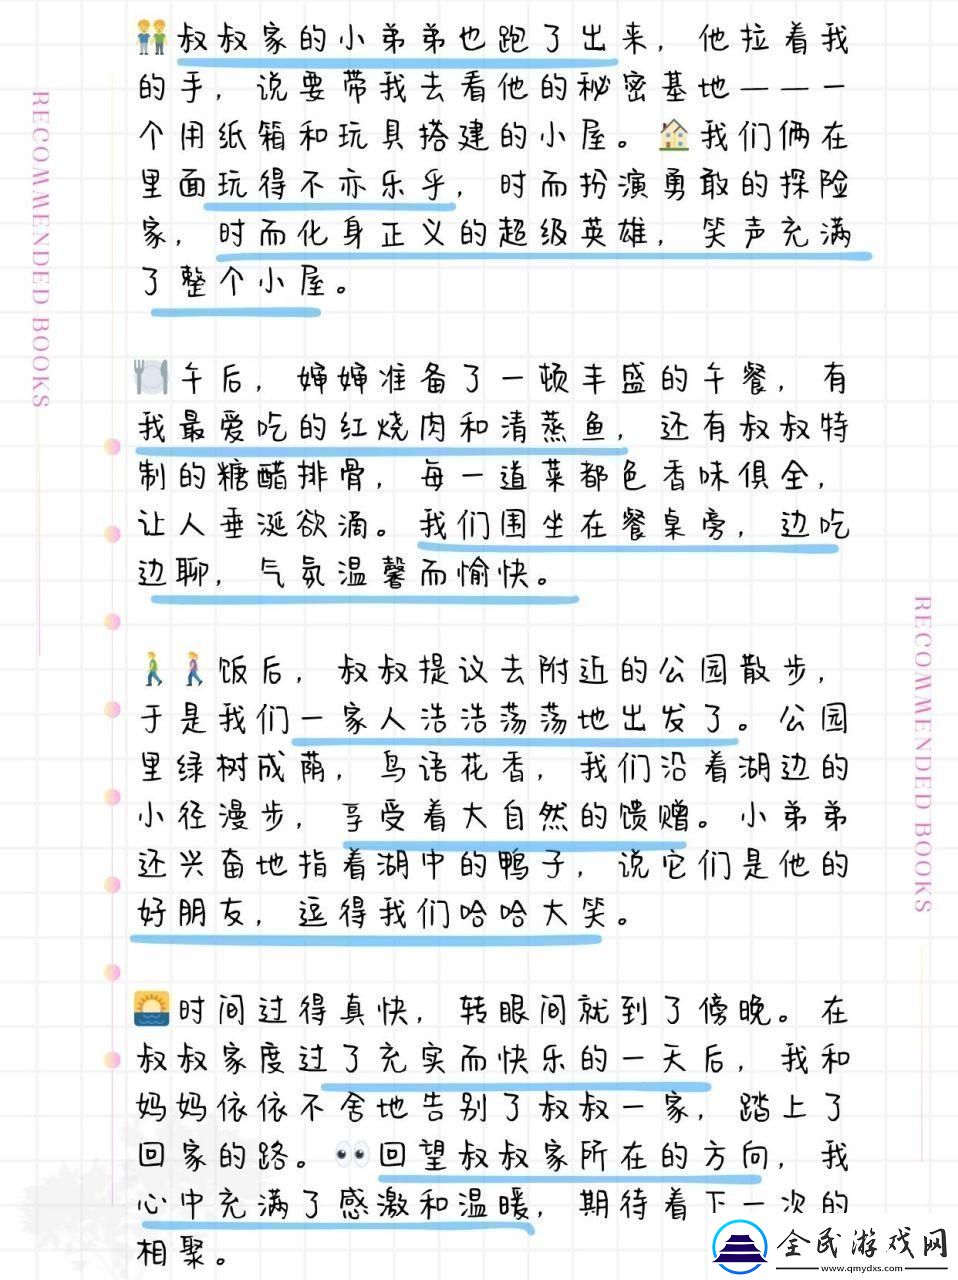 叔叔家的小弟弟也跑了出来，他拉着我
的手，说要带我去看他的秘密基地——一
个用纸箱和玩具搭建的小屋。🏠我们俩在
里面玩得不亦乐乎，时而扮演勇敢的探险
家，时而化身正义的超级英雄，笑声充满
了整个小屋。
午后，婶婶准备了一顿丰盛的午餐，有
我最爱吃的红烧肉和清蒸鱼，还有叔叔特
制的糖醋排骨，每一道菜都色香味俱全，
让人垂涎欲滴。我们围坐在餐桌旁，边吃
边聊，气氛温馨而愉快。
饭后，叔叔提议去附近的公园散步，
于是我们一家人浩浩荡荡地出发了。公园
里绿树成荫，鸟语花香，我们沿着湖边的
小径漫步，享受着大自然的馈赠。小弟弟
还兴奋地指着湖中的鸭子，说它们是他的
好朋友，逗得我们哈哈大笑。
时间过得真快，转眼间就到了傍晚。在
叔叔家度过了充实而快乐的一天后，我和
妈妈依依不舍地告别了叔叔一家，踏上了
回家的路。👀回望叔叔家所在的方向，我
心中充满了感激和温暖，期待着下一次的
相聚。
RECOMMENDED BOOKS
RECOMMENDED BOOKS
全民游戏网
www.qmydxs.com